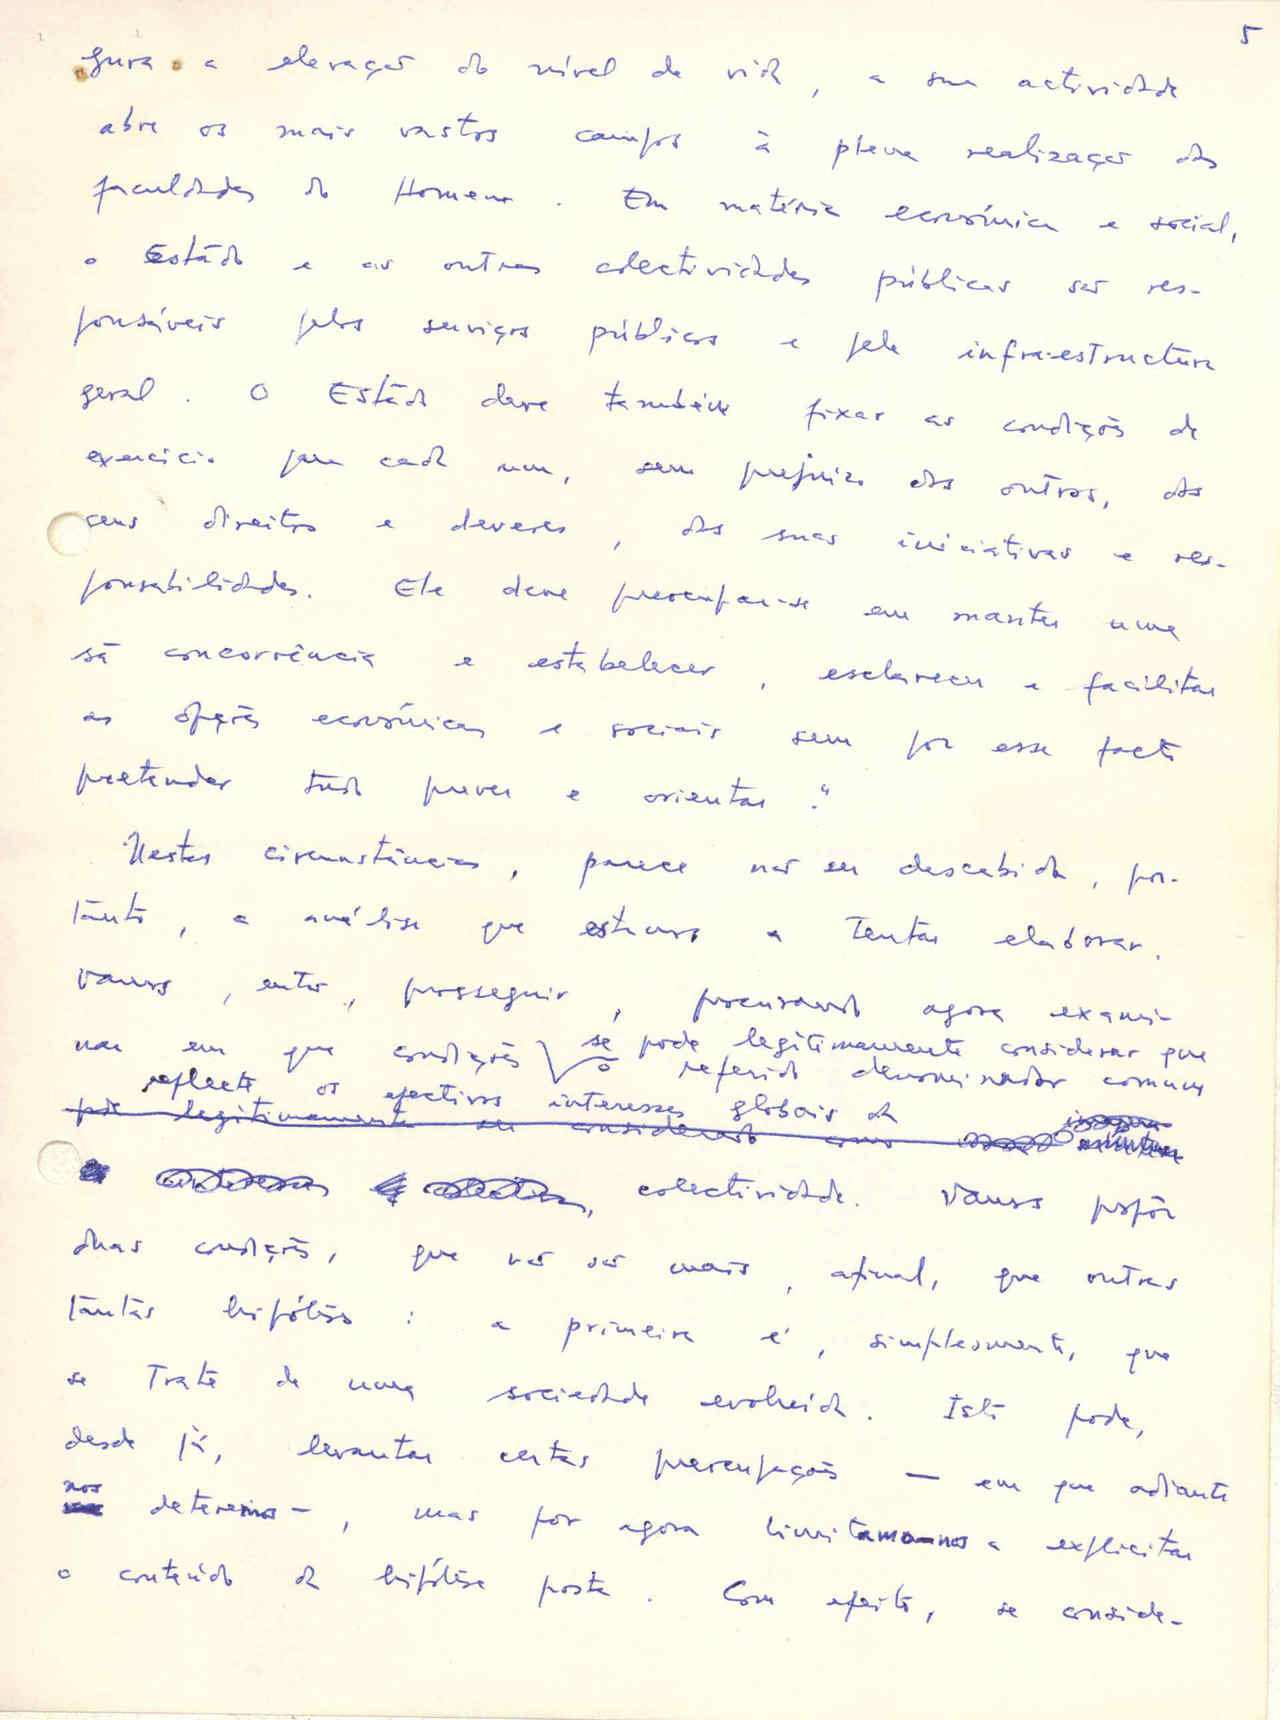 5
gura a elevação do nível de vida, a sua actividade
abre os mais vastos campos à plena realização das
faculdades do Homem. Em matéria económica e social,
o Estado e as outras colectividades públicas são res-
ponsáveis pelos serviços públicos e pela infra-estructura
geral. O Estado deve também fixar as condições de
exercício para cada um, sem prejuízo dos outros, dos
seus direitos e deveres, das suas iniciativas e res-
ponsabilidades. Ele deve preocupar-se em manter uma
sã concorrência e estabelecer, esclarecer e facilitar
as opções económicas e sociais sem por esse facto
pretender tudo prever e orientar."
Nestas circunstâncias, parece não ser descabida, por-
tanto, a análise que estamos a tentar elaborar.
Vamos, então, prosseguir, procurando agora exami-
nar em que condições se pode legitimamente considerar que
o referido denominador comum
reflecte os efectivos interesses globais da
pode legitimamente ser considerado como
colectividade. Vamos propôr
duas condições, que não são mais, afinal, que outras
tantas hipóteses: a primeira é, simplesmente, que
se trate de uma sociedade evoluída. Isto pode,
desde já, levantar certas preocupações — em que adiante
nos deteremos —, mas por agora limitamo-nos a explicitar
o conteúdo da hipótese posta. Com efeito, se conside-